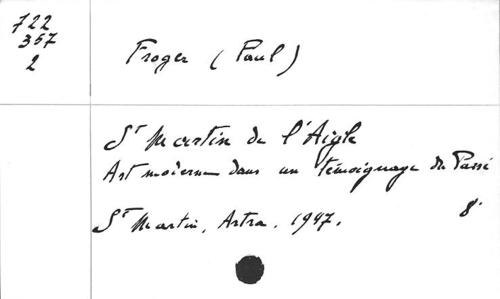 722
357
2
Froger (Paul)
St Martin de l'Aigle
Art moderne dans un témoignage du Passé
St Martin, Astra. 1947.
8°